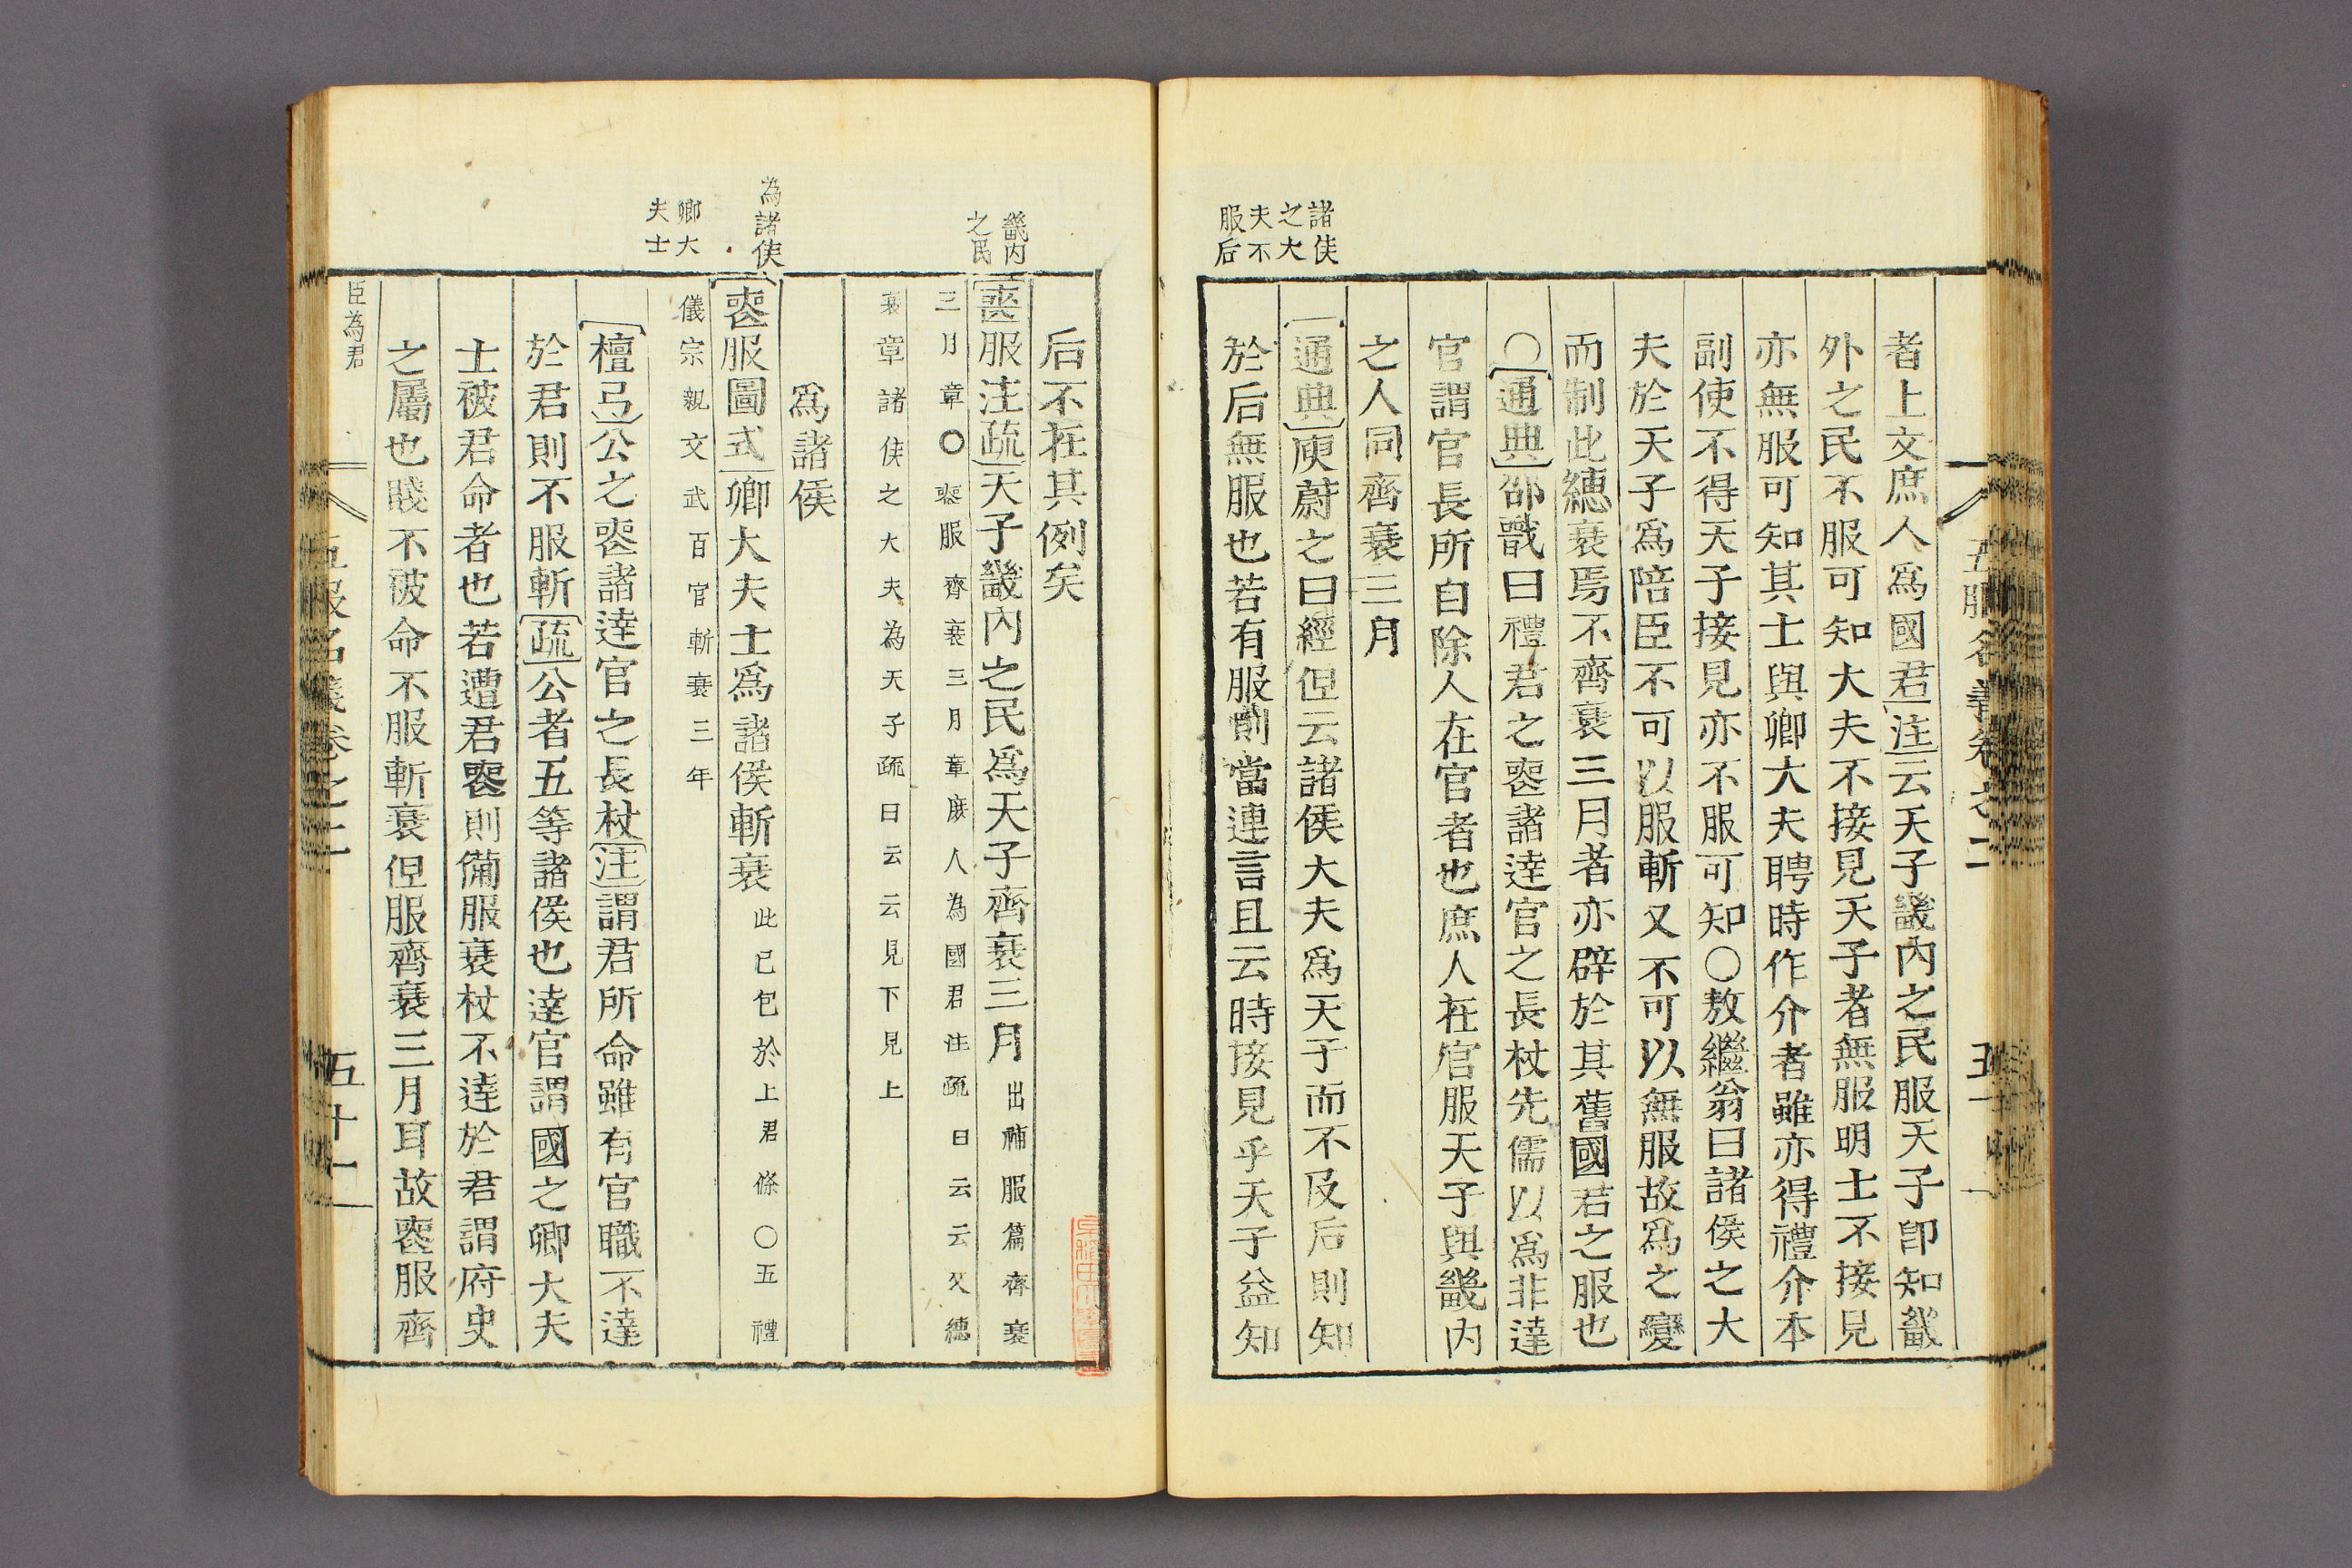 五服名義卷之二
者上文庶人爲國君注云天子畿內之民服天子卽知畿
外之民不服可知大夫不接見天子者無服明士不接見
亦無服可知其士與卿大夫聘時作介者雖亦得禮介本
副使不得天子接見亦不服可知○敖繼翁曰諸侯之大
夫於天子爲陪臣不可以服斬又不可以無服故爲之變
而制此繐衰焉不齊衰三月者亦辟於其舊國君之服也
○通典邵戩曰禮君之喪諸達官之長杖先儒以爲非達
官謂官長所自除人在官者也庶人在官服天子與畿內
之人同齊衰三月
諸侯
之大
夫不
服后
通典庾蔚之曰經但云諸侯大夫爲天子而不及后則知
於后無服也若有服前當連言且云時接見乎天子益知
后不在其例矣
畿内
之民
喪服注疏天子畿內之民爲天子齊衰三月出補服篇齊衰
三月章○喪服齊衰三月章庶人為國君注疏曰云云又繐
衰章諸侯之大夫為天子疏曰云云見下見上
爲諸侯
為諸侯
卿大
夫士
喪服圖式卿大夫士爲諸侯斬衰此已包於上君條○五禮
儀宗親文武百官斬衰三年
檀弓公之喪諸達官之長杖注謂君所命雖有官職不達
於君則不服斬疏公者五等諸侯也達官謂國之卿大夫
士被君命者也若遭君喪則備服衰杖不達於君謂府史
之屬也賤不被命不服斬衰但服齊衰三月耳故喪服齊
臣為君
五服名義卷之二
五十二